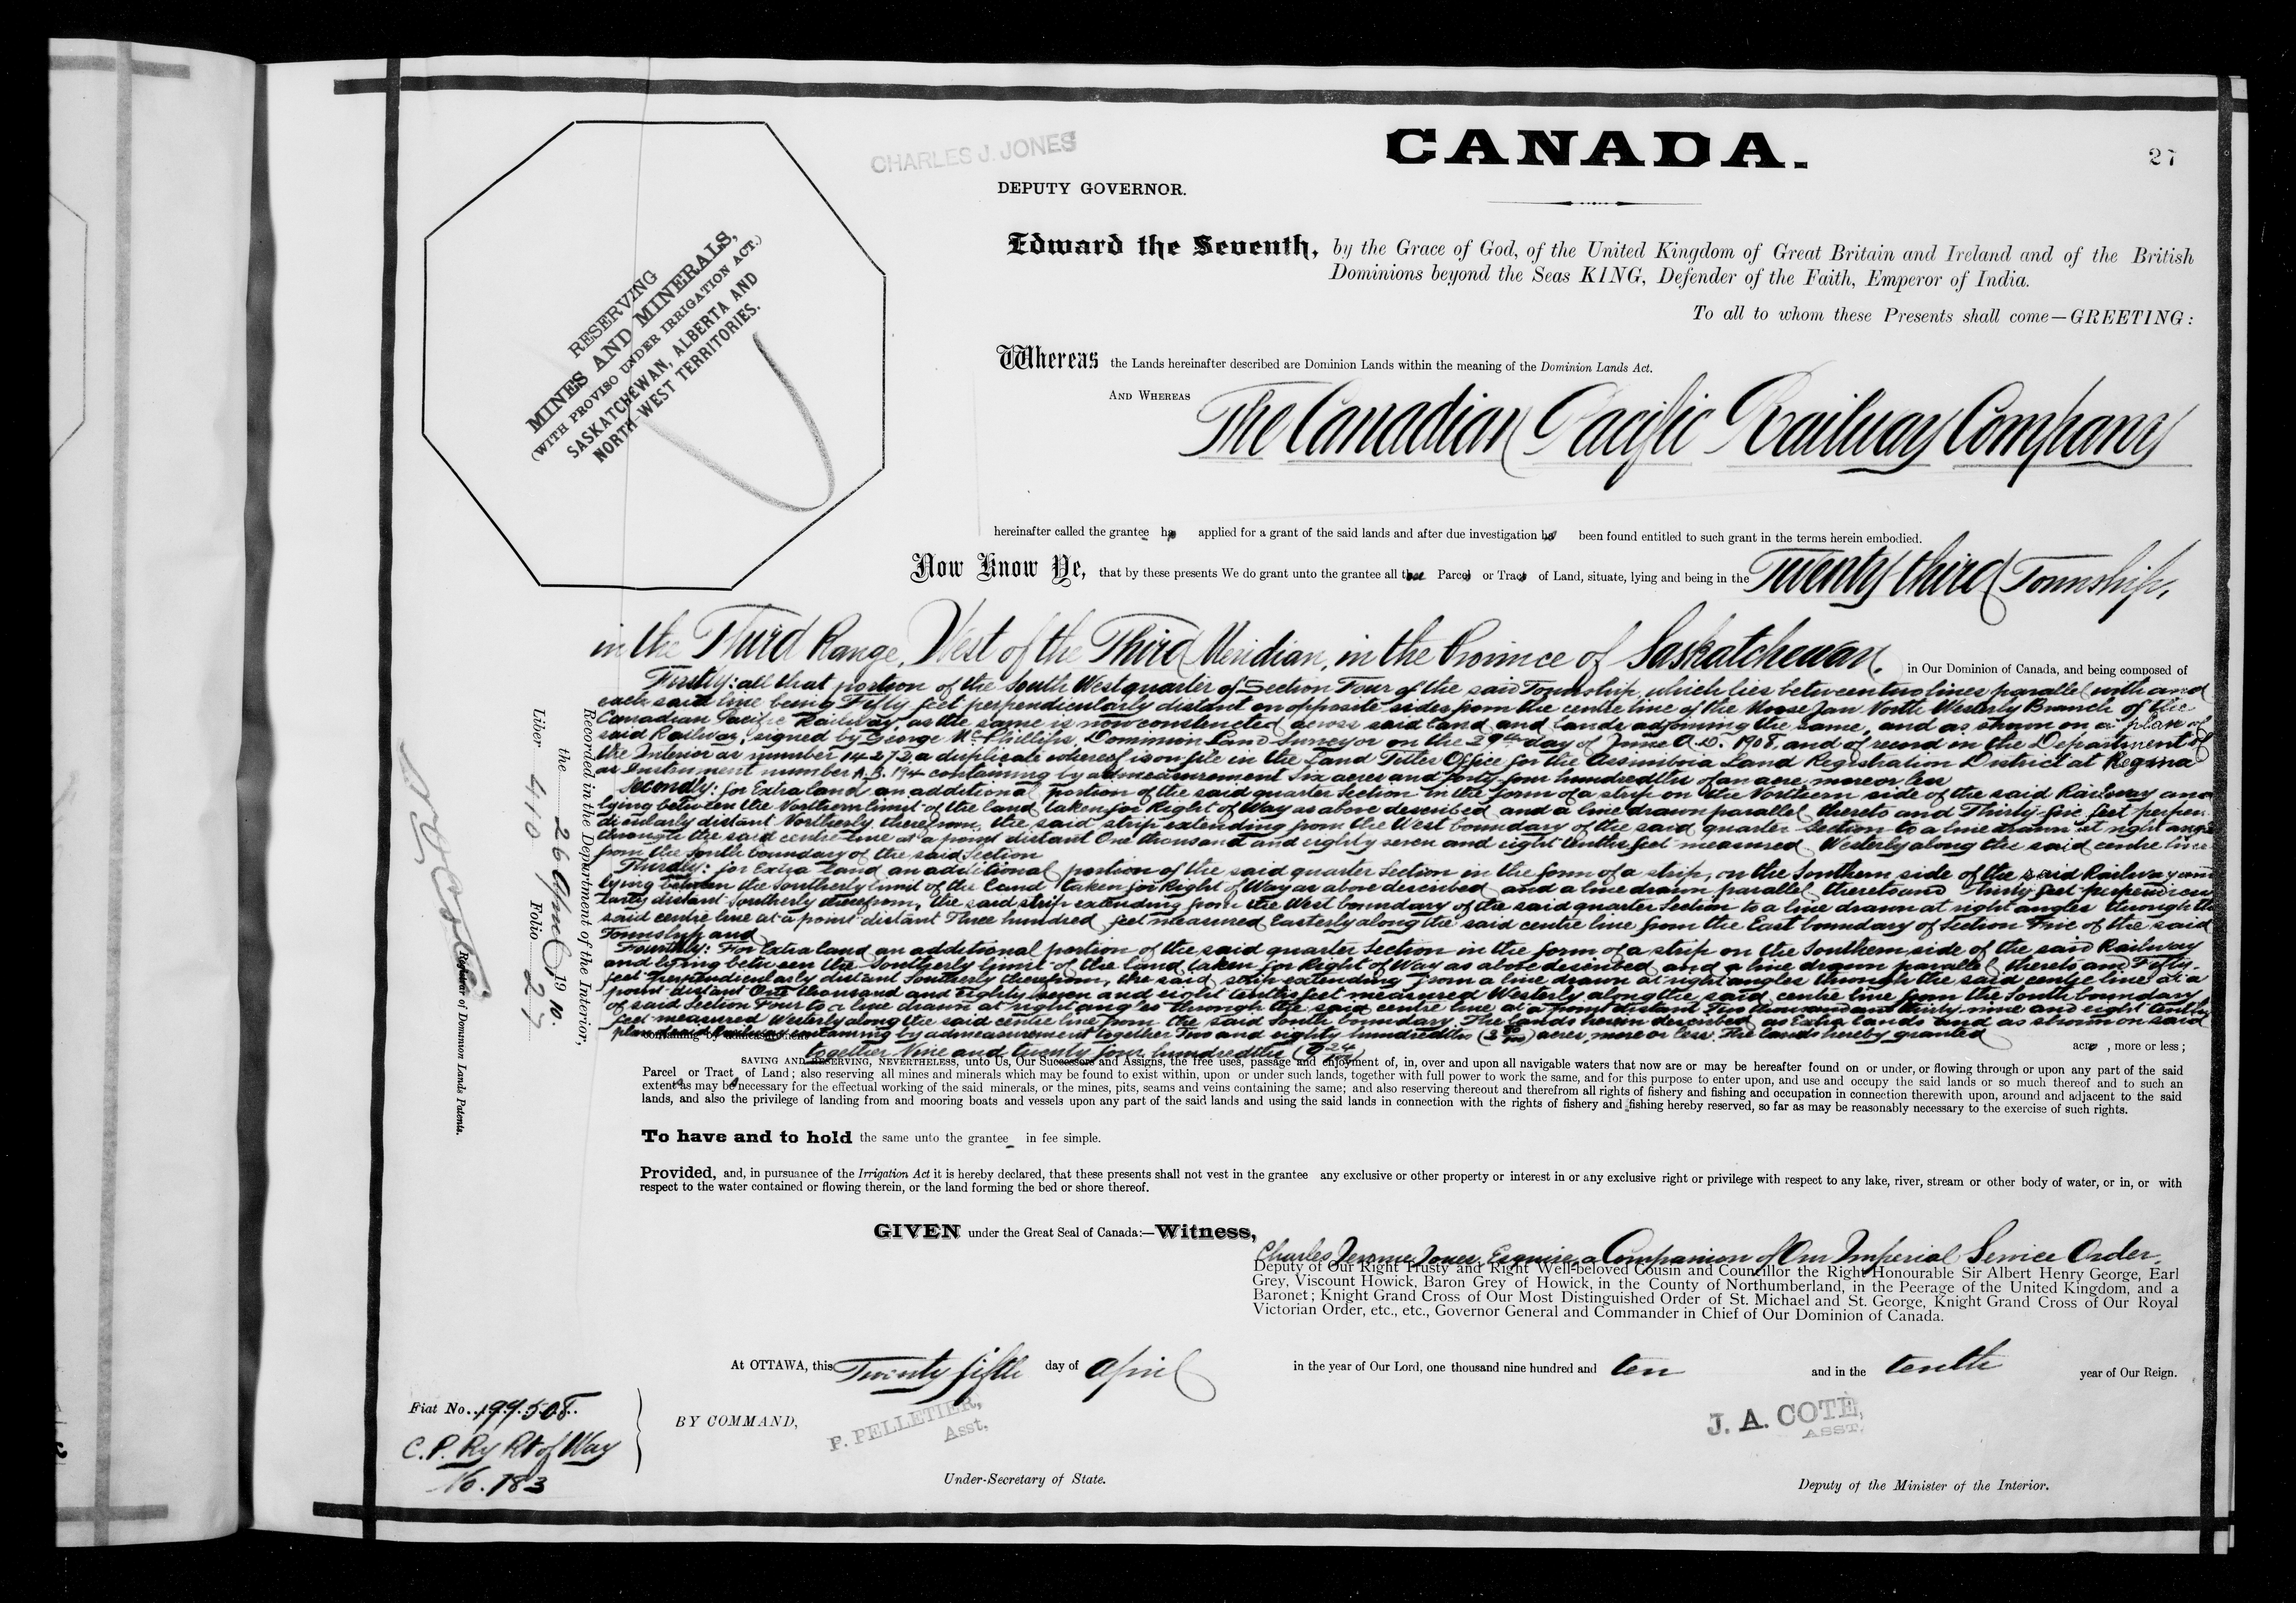 CANADA.
27
CHARLES J. JONES
DEPUTY GOVERNOR.
RESERVING
MINES AND MINERALS,
(WITH PROVISO UNDER IRRIGATION ACT.)
SASKATCHEWAN, ALBERTA AND
NORTH-WEST TERRITORIES.
Edward the Seventh, by the Grace of God, of the United Kingdom of Great Britain and Ireland and of the British
Dominions beyond the Seas KING, Defender of the Faith, Emperor of India.
To all to whom these Presents shall come—GREETING:
Whereas the Lands hereinafter described are Dominion Lands within the meaning of the Dominion Lands Act.
AND WHEREAS The Canadian Pacific Railway Company
hereinafter called the grantee ha applied for a grant of the said lands and after due investigation ha been found entitled to such grant in the terms herein embodied.
Now Know Ye, that by these presents We do grant unto the grantee all Parcel or Tract of Land, situate, lying and being in the Twenty third Township,
in the Third Range, West of the Third Meridian, in the Province of Saskatchewan. in Our Dominion of Canada, and being composed of
Firstly: all that portion of the South West quarter of Section Four of the said Township, which lies between two lines parallel with and
each said line being Fifty feet perpendicularly distant on opposite sides from the centre line of the Moose Jaw North Westerly Branch of the
Canadian Pacific Railway, as the same is now constructed across said land and lands adjoining the same, and as shown on a plan of
said Railway, signed by George Mc Phillips, Dominion Land Surveyor on the 29th day of June A.D. 1908, and of record in the Department of
the Interior as number 14272, a duplicate whereof is on file in the Land Titles Office for the Assiniboia Land Registration District at Regina
as Instrument number A.B. 194 containing by admeasurement Six acres and forty four hundredths of an acre, more or less
Secondly: for Extra land an additional portion of the said quarter Section in the form of a strip on the Northern side of the said Railway and
lying between the Northern limit of the land taken for Right of Way as above described and a line drawn parallel thereto and Thirty-five feet perpen-
dicularly distant Northerly therefrom, the said strip extending from the West boundary of the said quarter Section to a line drawn at right angles
through the said centre line at a point distant One thousand and eighty seven and eight tenths feet measured Westerly along the said centre line
from the South boundary of the said Section
Thirdly: for Extra land an additional portion of the said quarter Section in the form of a strip, on the Southern side of the said Railway and
lying between the Southerly limit of the land taken for Right of Way as above described and a line drawn parallel thereto and thirty feet perpendicu-
larly distant Southerly therefrom, the said strip extending from the West boundary of the said quarter Section to a line drawn at right angles through the
said centre line at a point distant Three hundred feet measured Easterly along the said centre line from the East boundary of Section Five of the said
Township and
Fourthly: For Extra land an additional portion of the said quarter Section in the form of a strip on the Southern side of the said Railway
and lying between the Southerly limit of the land taken for Right of Way as above described and a line drawn parallel thereto and Fifty-
feet perpendicularly distant Southerly therefrom, the said strip extending from a line drawn at right angles through the said centre line at a
point distant One thousand and Eighty seven and eight tenths feet measured Westerly along the said centre line from the South boundary
of said Section Four to a line drawn at right angles through the said centre line at a point distant Two thousand and thirty nine and eight tenths
feet measured Westerly along the said centre line from the said South boundary. The lands herein described as Extra lands and as shown on said
plan of said Railway containing by admeasurement together Two and eighty hundredths (2 80/100) acres more or less. The lands hereby granted
containing by admeasurement together Nine and twenty four hundredths (9 24/100) acre , more or less ;
SAVING AND RESERVING, NEVERTHELESS, unto Us, Our Successors and Assigns, the free uses, passage and enjoyment of, in, over and upon all navigable waters that now are or may be hereafter found on or under, or flowing through or upon any part of the said
Parcel or Tract of Land ; also reserving all mines and minerals which may be found to exist within, upon or under such lands, together with full power to work the same, and for this purpose to enter upon, and use and occupy the said lands or so much thereof and to such an
extent as may be necessary for the effectual working of the said minerals, or the mines, pits, seams and veins containing the same ; and also reserving thereout and therefrom all rights of fishery and fishing and occupation in connection therewith upon, around and adjacent to the said
lands, and also the privilege of landing from and mooring boats and vessels upon any part of the said lands and using the said lands in connection with the rights of fishery and fishing hereby reserved, so far as may be reasonably necessary to the exercise of such rights.
To have and to hold the same unto the grantee in fee simple.
Provided, and, in pursuance of the Irrigation Act it is hereby declared, that these presents shall not vest in the grantee any exclusive or other property or interest in or any exclusive right or privilege with respect to any lake, river, stream or other body of water, or in, or with
respect to the water contained or flowing therein, or the land forming the bed or shore thereof.
GIVEN under the Great Seal of Canada:—Witness,
Charles Jerome Jones, Esquire, a Companion of Our Imperial Service Order,
Deputy of Our Right Trusty and Right Well-beloved Cousin and Councillor the Right Honourable Sir Albert Henry George, Earl
Grey, Viscount Howick, Baron Grey of Howick, in the County of Northumberland, in the Peerage of the United Kingdom, and a
Baronet ; Knight Grand Cross of Our Most Distinguished Order of St. Michael and St. George, Knight Grand Cross of Our Royal
Victorian Order, etc., etc., Governor General and Commander in Chief of Our Dominion of Canada.
At OTTAWA, this Twenty fifth day of April in the year of Our Lord, one thousand nine hundred and ten and in the tenth year of Our Reign.
BY COMMAND,
P. PELLETIER,
Asst.
Under-Secretary of State.
J. A. COTÉ,
ASST.
Deputy of the Minister of the Interior.
Fiat No. 199508.
C.P. Ry Rt of Way
No. 183
Recorded in the Department of the Interior,
the 26 April 1910.
Liber 410 Folio 27
Registrar of Dominion Lands Patents.